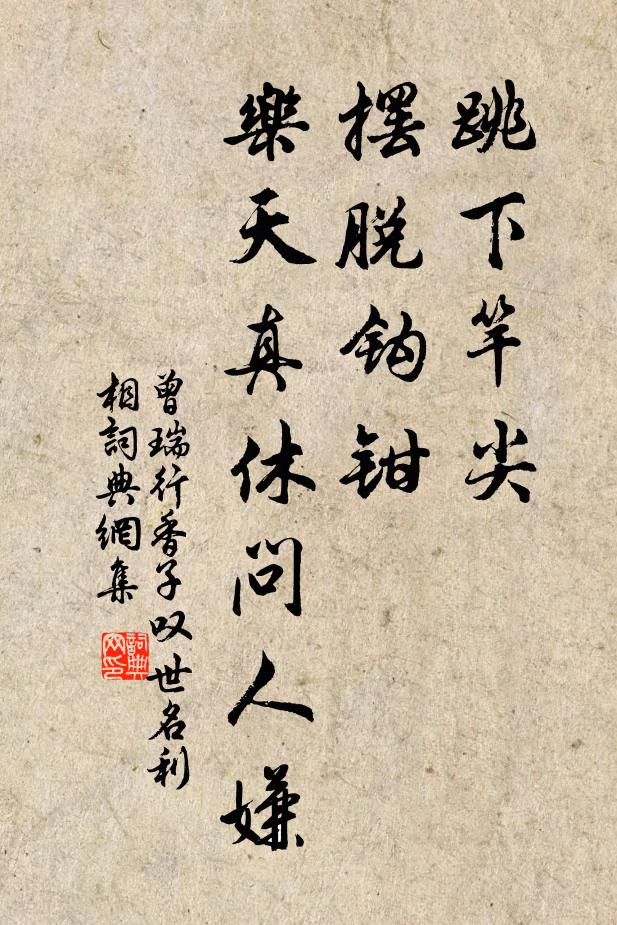 跳下竿尖
摆脫鈎钳
樂天真休問人嫌
曾瑞行香子叹世名利
相詞典網集
詞典网印